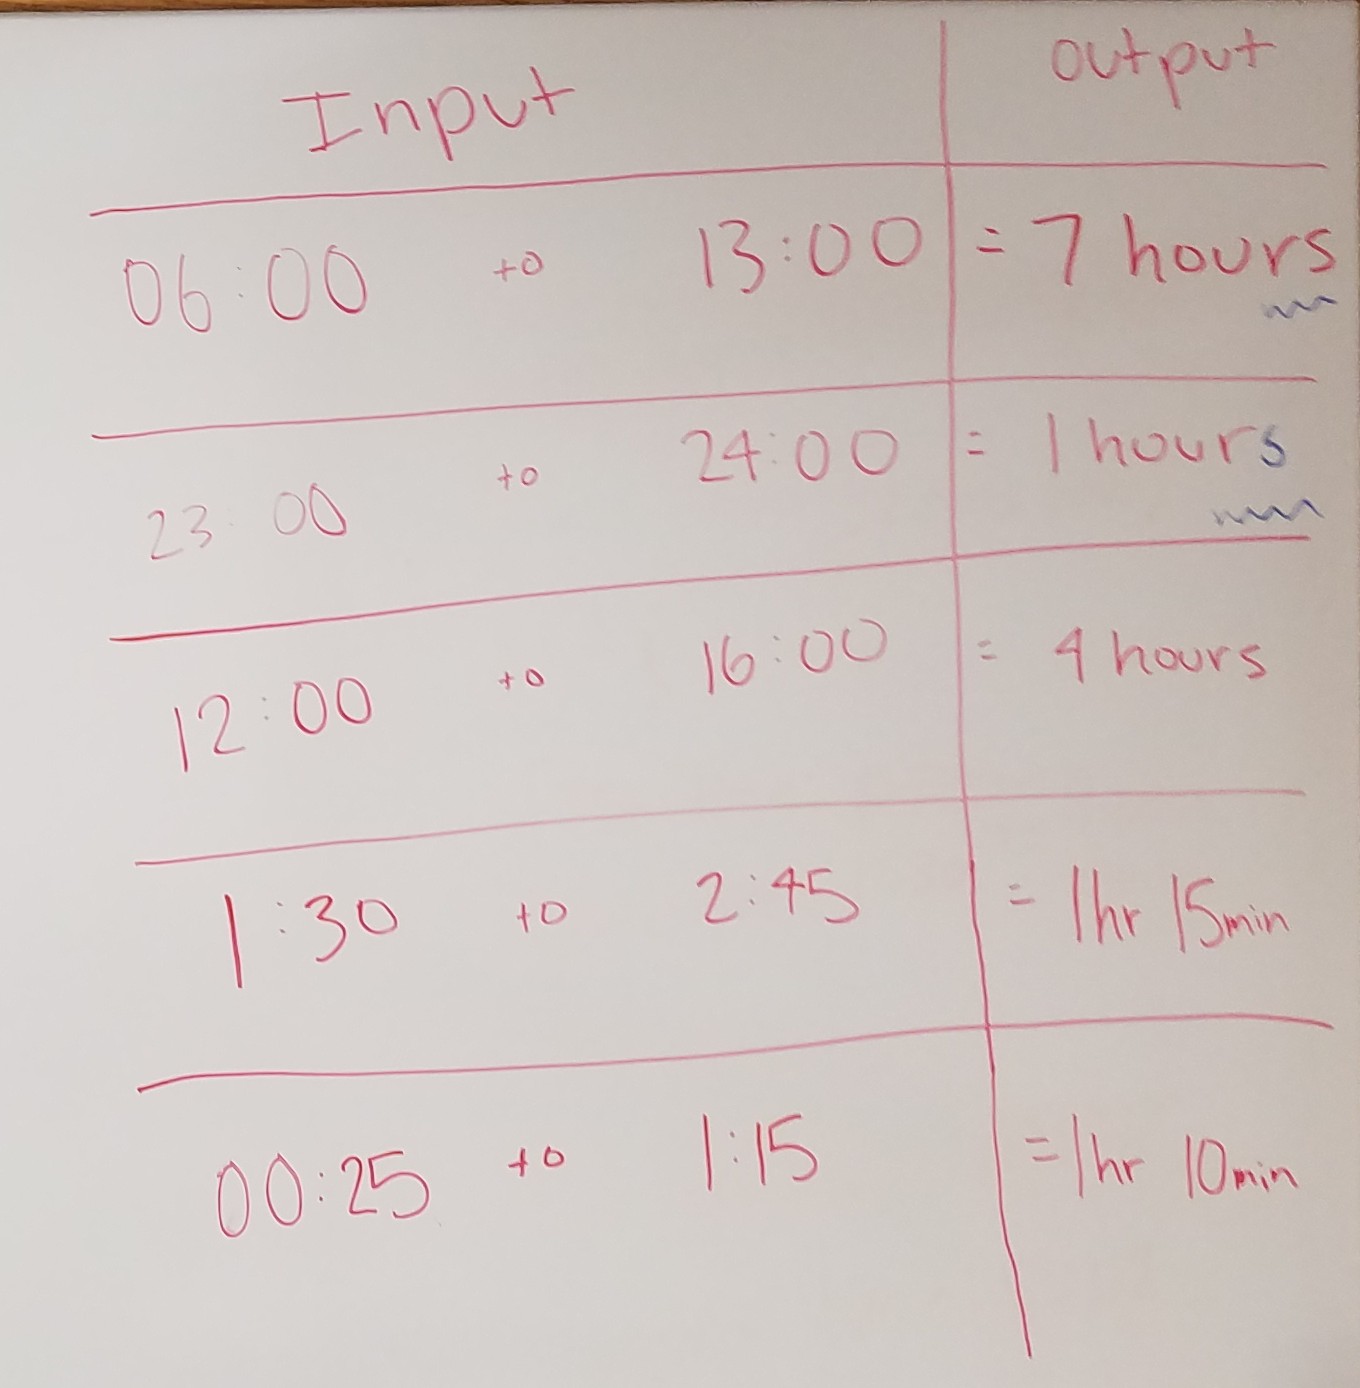 Input output
06:00 to 13:00 = 7 hours
23:00 to 24:00 = 1 hours
12:00 to 16:00 = 4 hours
1:30 to 2:45 = 1hr 15min
00:25 to 1:15 = 1hr 10min